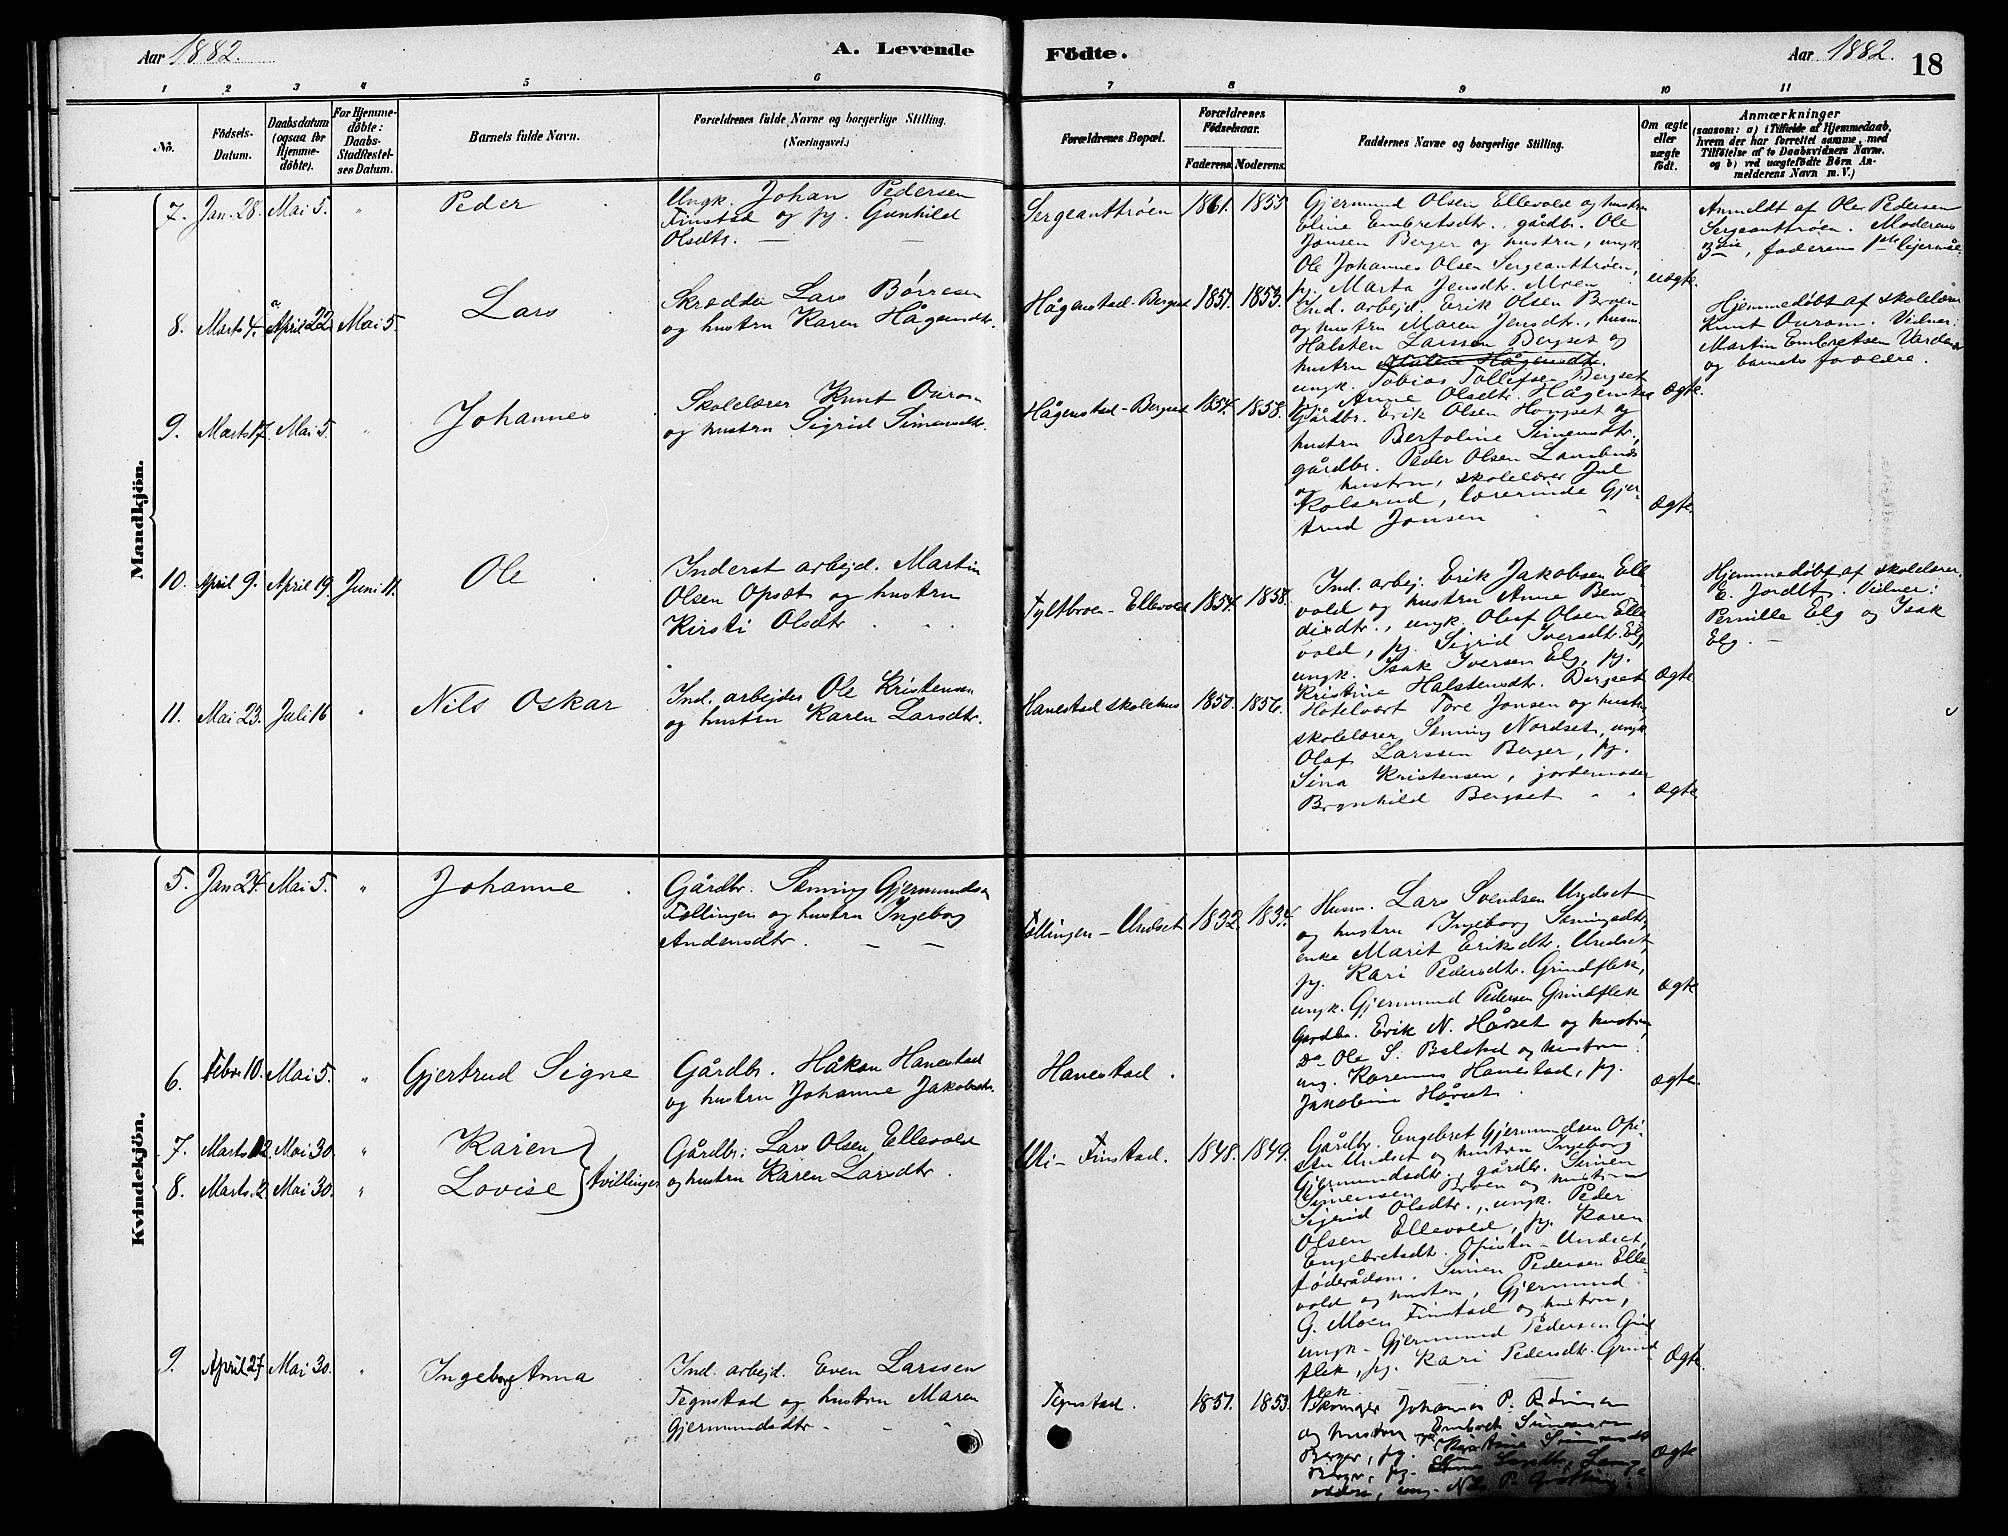 Aar 1882.
A. Levende
Födte.
Aar 1882.
18
1 2 3 4 5 6 7 8 9 10 11
No.
Födsels-
Datum.
Daabsdatum
(ogsaa for
Hjemme-
döbte).
For Hjemme-
döbte:
Daabs-
Stadfestel-
ses Datum.
Barnets fulde Navn.
Forældrenes fulde Navne og borgerlige Stilling.
(Næringsvei.)
Forældrenes Bopæl.
Forældrenes
Födselsaar.
Faderens. Moderens.
Faddernes Navne og borgerlige Stilling.
Om ægte
eller
uægte
födt.
Anmærkninger
(saasom: a) i Tilfælde af Hjemmedaab,
hvem der har forrettet samme, med
Tilföielse af to Daabsvidners Navne.
og b) ved uægtefödte Börn An-
melderens Navn m. V.)
Mandkjön.
7. Jan. 28. Mai 5. " Peder
Ungk. Johan Pedersen
Finstad og pg. Gunhild
Olsdtr.
Sergeanttrøen 1861. 1855
Gjermund Olsen Ellevold og hustru
Eline Embretsdtr. gårdbr. Ole
Jonsen Berger og hustru, ungk.
Ole Johannes Olsen Sergeanttrøen,
pg. Marta Jensdtr. Moen
uægte.
Anmeldt af Ole Pedersen
Sergeanttrøen. Moderens
3die, faderens 1ste lejermål
8. Marts 4. April 22. Mai 5. Lars
Skrædder Lars Børresen
og hustru Karen Hågensdtr.
Hågenstad-Bergset 1851. 1853.
Ind. arbejd. Erik Olsen Broen
og hustru Maren Jensdtr., husm.
Halsten Larssen Bergset og
hustru
ungk. Tobias Tollefsen Bergset
pg. Anne Olsdtr. Hågenstad
Ægte.
Hjemmedøbt af skolelærer
Knut Ourom. Vidner:
Martin Embretsen
og barnets forældre.
9. Marts 17. Mai 5. " Johannes
Skolelærer Knut Ourom
og hustru Sigrid Simensdtr.
Hågenstad-Bergset 1854. 1858.
Gårdbr. Erik Olsen Hongset og
hustru Bertoline Simensdtr.,
gårdbr. Peder Olsen
og hustru, skolelærer Jul
Kolsrud, lærerinde Gjer-
trud Jonsen
Ægte.
10. April 9. April 19. Juni 11. Ole
Inderst arbejd. Martin
Olsen Opsæt og hustru
Kirsti Olsdtr
Tyltbroen-Ellevold 1854. 1858.
Ind. arbej. Erik Jakobsen Elle-
vold og hustru Anne Ben-
dixdtr., ungk. Olaf Olsen Elle-
vold, pg. Sigrid Iversdtr. Elg,
ungk. Isak Iversen Elg, pg.
Kristine Halstensdtr. Bergset
Ægte
Hjemmedøbt af skolelærer
E. Jordet. Vidner:
Pernille Elg og Isak
Elg.
11. Mai 23. Juli 16 " Nils Oskar
Ind. arbejder Ole Kristensen
og hustru Karen Larsdtr.
Hanestad skolehus 1850. 1856.
Hotelvært Tore Jonsen og hustru
skolelærer Sæming Nordset, ungk
Olaf Larssen Berger, pg.
Sina Kristensen, jordemoder
Brynhild Bergset
Ægte
Kvindekjön.
5. Jan 24. Mai 5. " Johanne
Gårdbr. Sæming Gjermundsen
Follingen og hustru Ingeborg
Andersdtr.
Follingen-Undset 1832. 1834.
Husm. Lars Svendsen Undset
og hustru Ingeborg Sæmingsdtr,
enke Marit Eriksdtr. Undset,
pg. Kari Pedersdtr. Grindflek,
ungk. Gjermund Pedersen Grindflek
Ægte
6. Febr. 10. Mai 5. " Gjertrud Signe
Gårdbr. Håkon Hanestad
og hustru Johanne Jakobsdtr.
Hanestad.
Gårdbr. Erik N. Hårset og hustru
Do Ole S. Bolstad og hustru
ung. Karenus Hanestad, pg.
Jakobine Hårset.
Ægte.
7. Marts 12. Mai 30. " Karen
8. Marts 12. Mai 30. " Lovise } tvillinger
Gårdbr. Lars Olsen Ellevold
og hustru Karen Larsdtr.
Uti-Finstad. 1848. 1849.
Gårdbr. Engebret Gjermundsen Opi-
stu Undset og hustru Ingeborg
Gjermundsdtr, gårdbr. Simen
Simensen Broen og hustru
Sigrid Olsdtr., ungk. Peder
Olsen Ellevold, pg. Karen
Engebretsdtr. Opistu-Undset,
føderådsm. Simen Pedersen Elle-
vold og hustru, Gjermund
G. Moen Finstad og hustru,
ungk. Gjermund Pedersen Grind
flek, pg. Kari Pedersdtr. Grind-
flek.
Ægte.
9. April 27 Mai 30. " Ingeborg Anna
Ind. arbejd. Even Larssen
Tegnstad og hustru Maren
Gjermundsdtr.
Tegnstad. 1851. 1853.
Johannes P.
og hustru Embret Simensen
Berger, pg. Kristine Simensdtr
Berger, pg.
ung. Nils P.
Ægte